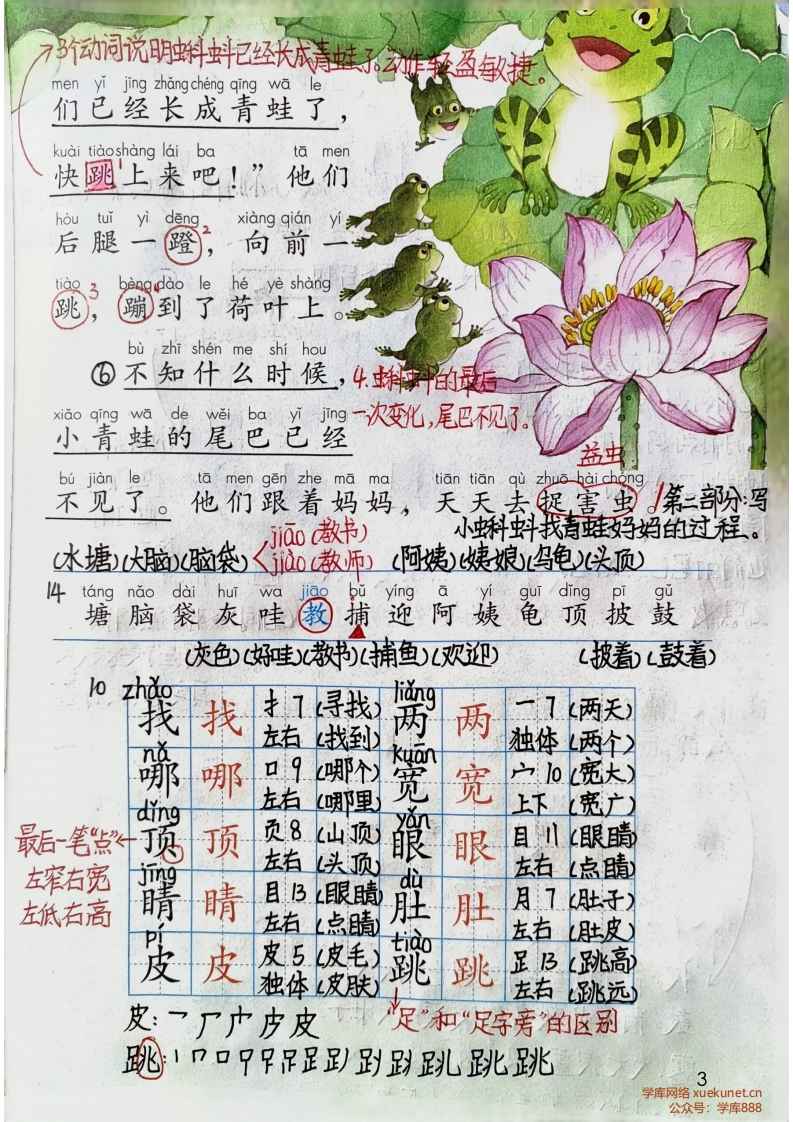 3个动词说明蝌蚪已经长成青蛙了。动作轻盈敏捷。
men yǐ jīng zhǎng chéng qīng wā le
们已经长成青蛙了，
kuài tiào shàng lái ba tā men
快跳1上来吧！”他们
hòu tuǐ yì dēng xiàng qián yí
后腿一蹬2，向前一
tiào bèng dào le hé yè shàng
跳3，蹦4到了荷叶上。
bù zhī shén me shí hou
⑥不知什么时候，
4.蝌蚪的最后
一次变化，尾巴不见了。
xiǎo qīng wā de wěi ba yǐ jīng
小青蛙的尾巴已经
益虫
bú jiàn le tā men gēn zhe mā ma tiān tiān qù zhuō hài chóng
不见了。他们跟着妈妈，天天去捉害虫。
第二部分:写
小蝌蚪找青蛙妈妈的过程。
jiāo(教书)
jiào(教师)
(水塘)(大脑)(脑袋) (阿姨)(姨娘)(乌龟)(头顶)
14
táng nǎo dài huī wa jiāo bǔ yíng ā yí guī dǐng pī gǔ
塘脑袋灰哇教捕迎阿姨龟顶披鼓
(灰色)(好哇)(教书)(捕鱼)(欢迎) (披着)(鼓着)
10
zhǎo liǎng
找 找 扌7 (寻找) 两 两 一7 (两天)
左右 (找到) 独体 (两个)
nǎ kuān
哪 哪 口9 (哪个) 宽 宽 宀10 (宽大)
左右 (哪里) 上下 (宽广)
dǐng yǎn
顶 顶 页8 (山顶) 眼 眼 目11 (眼睛)
左右 (头顶) 左右 (点睛)
最后一笔“点”
左窄右宽
左低右高
jīng dù
睛 睛 目13 (眼睛) 肚 肚 月7 (肚子)
左右 (点睛) 左右 (肚皮)
pí tiào
皮 皮 皮5 (皮毛) 跳 跳 足13 (跳高)
独体 (皮肤) 左右 (跳远)
“足”和“足字旁”的区别
皮:
跳:
3
学库网络 xuekunet.cn
公众号：学库888